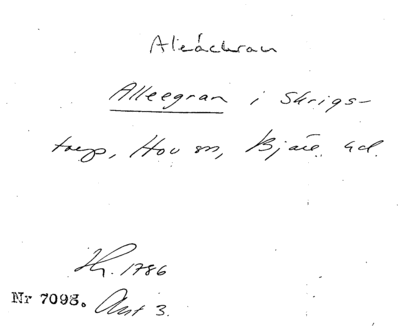 Aleáckran
Alleegran i Skrigs-
torp, Hov sn, Bjäre hd.
Th. 1786
Nr 7093. Ant 3.